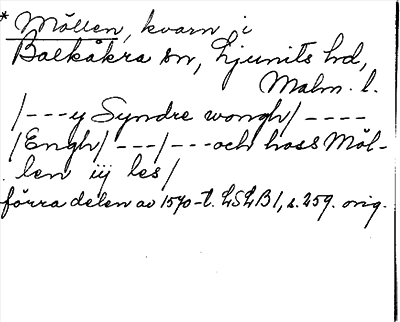 * Möllen, kvarn i
Balkåkra sn, Ljunits hd,
Malm. l.
/---y Syndre wongh/----
/Engh/---/---och hoss Möl-
len iij les/
förra delen av 1570-t. LSLB1, s. 259. orig.